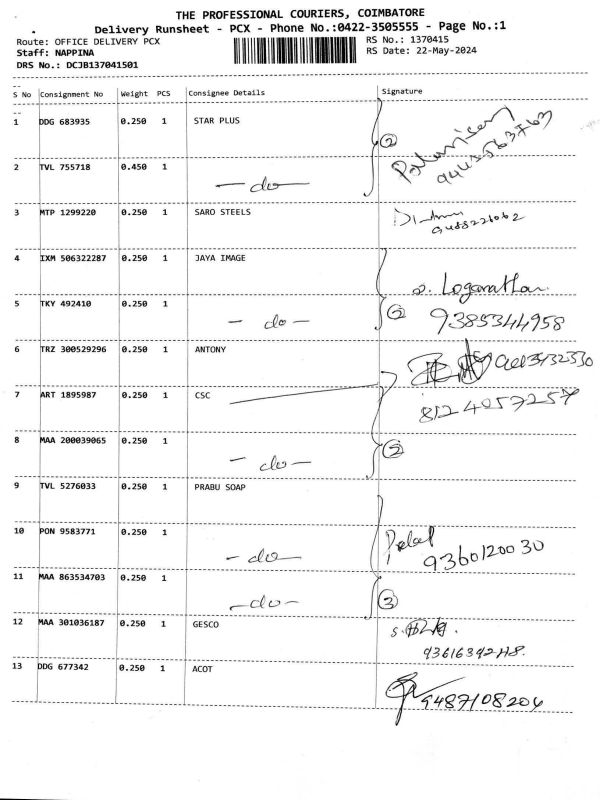 THE PROFESSIONAL COURIERS, COIMBATORE
Delivery Runsheet - PCX - Phone No.:0422-3505555 - Page No.:1
Route: OFFICE DELIVERY PCX RS No.: 1370415
Staff: NAPPINA RS Date: 22-May-2024
DRS No.: DCJB137041501
S No Consignment No Weight PCS Consignee Details Signature
1 DDG 683935 0.250 1 STAR PLUS
2 TVL 755718 0.450 1 - do - 2
3 MTP 1299220 0.250 1 SARO STEELS
4 IXM 506322287 0.250 1 JAYA IMAGE
S. Loganathan
5 TKY 492410 0.250 1 - do - 2 9385344958
6 TRZ 300529296 0.250 1 ANTONY
7 ART 1895987 0.250 1 CSC 8124057257
8 MAA 200039065 0.250 1 - do - 2
9 TVL 5276033 0.250 1 PRABU SOAP
10 PON 9583771 0.250 1 - do - 9360120030
11 MAA 863534703 0.250 1 - do - 3
12 MAA 301036187 0.250 1 GESCO
13 DDG 677342 0.250 1 ACOT
9487108204